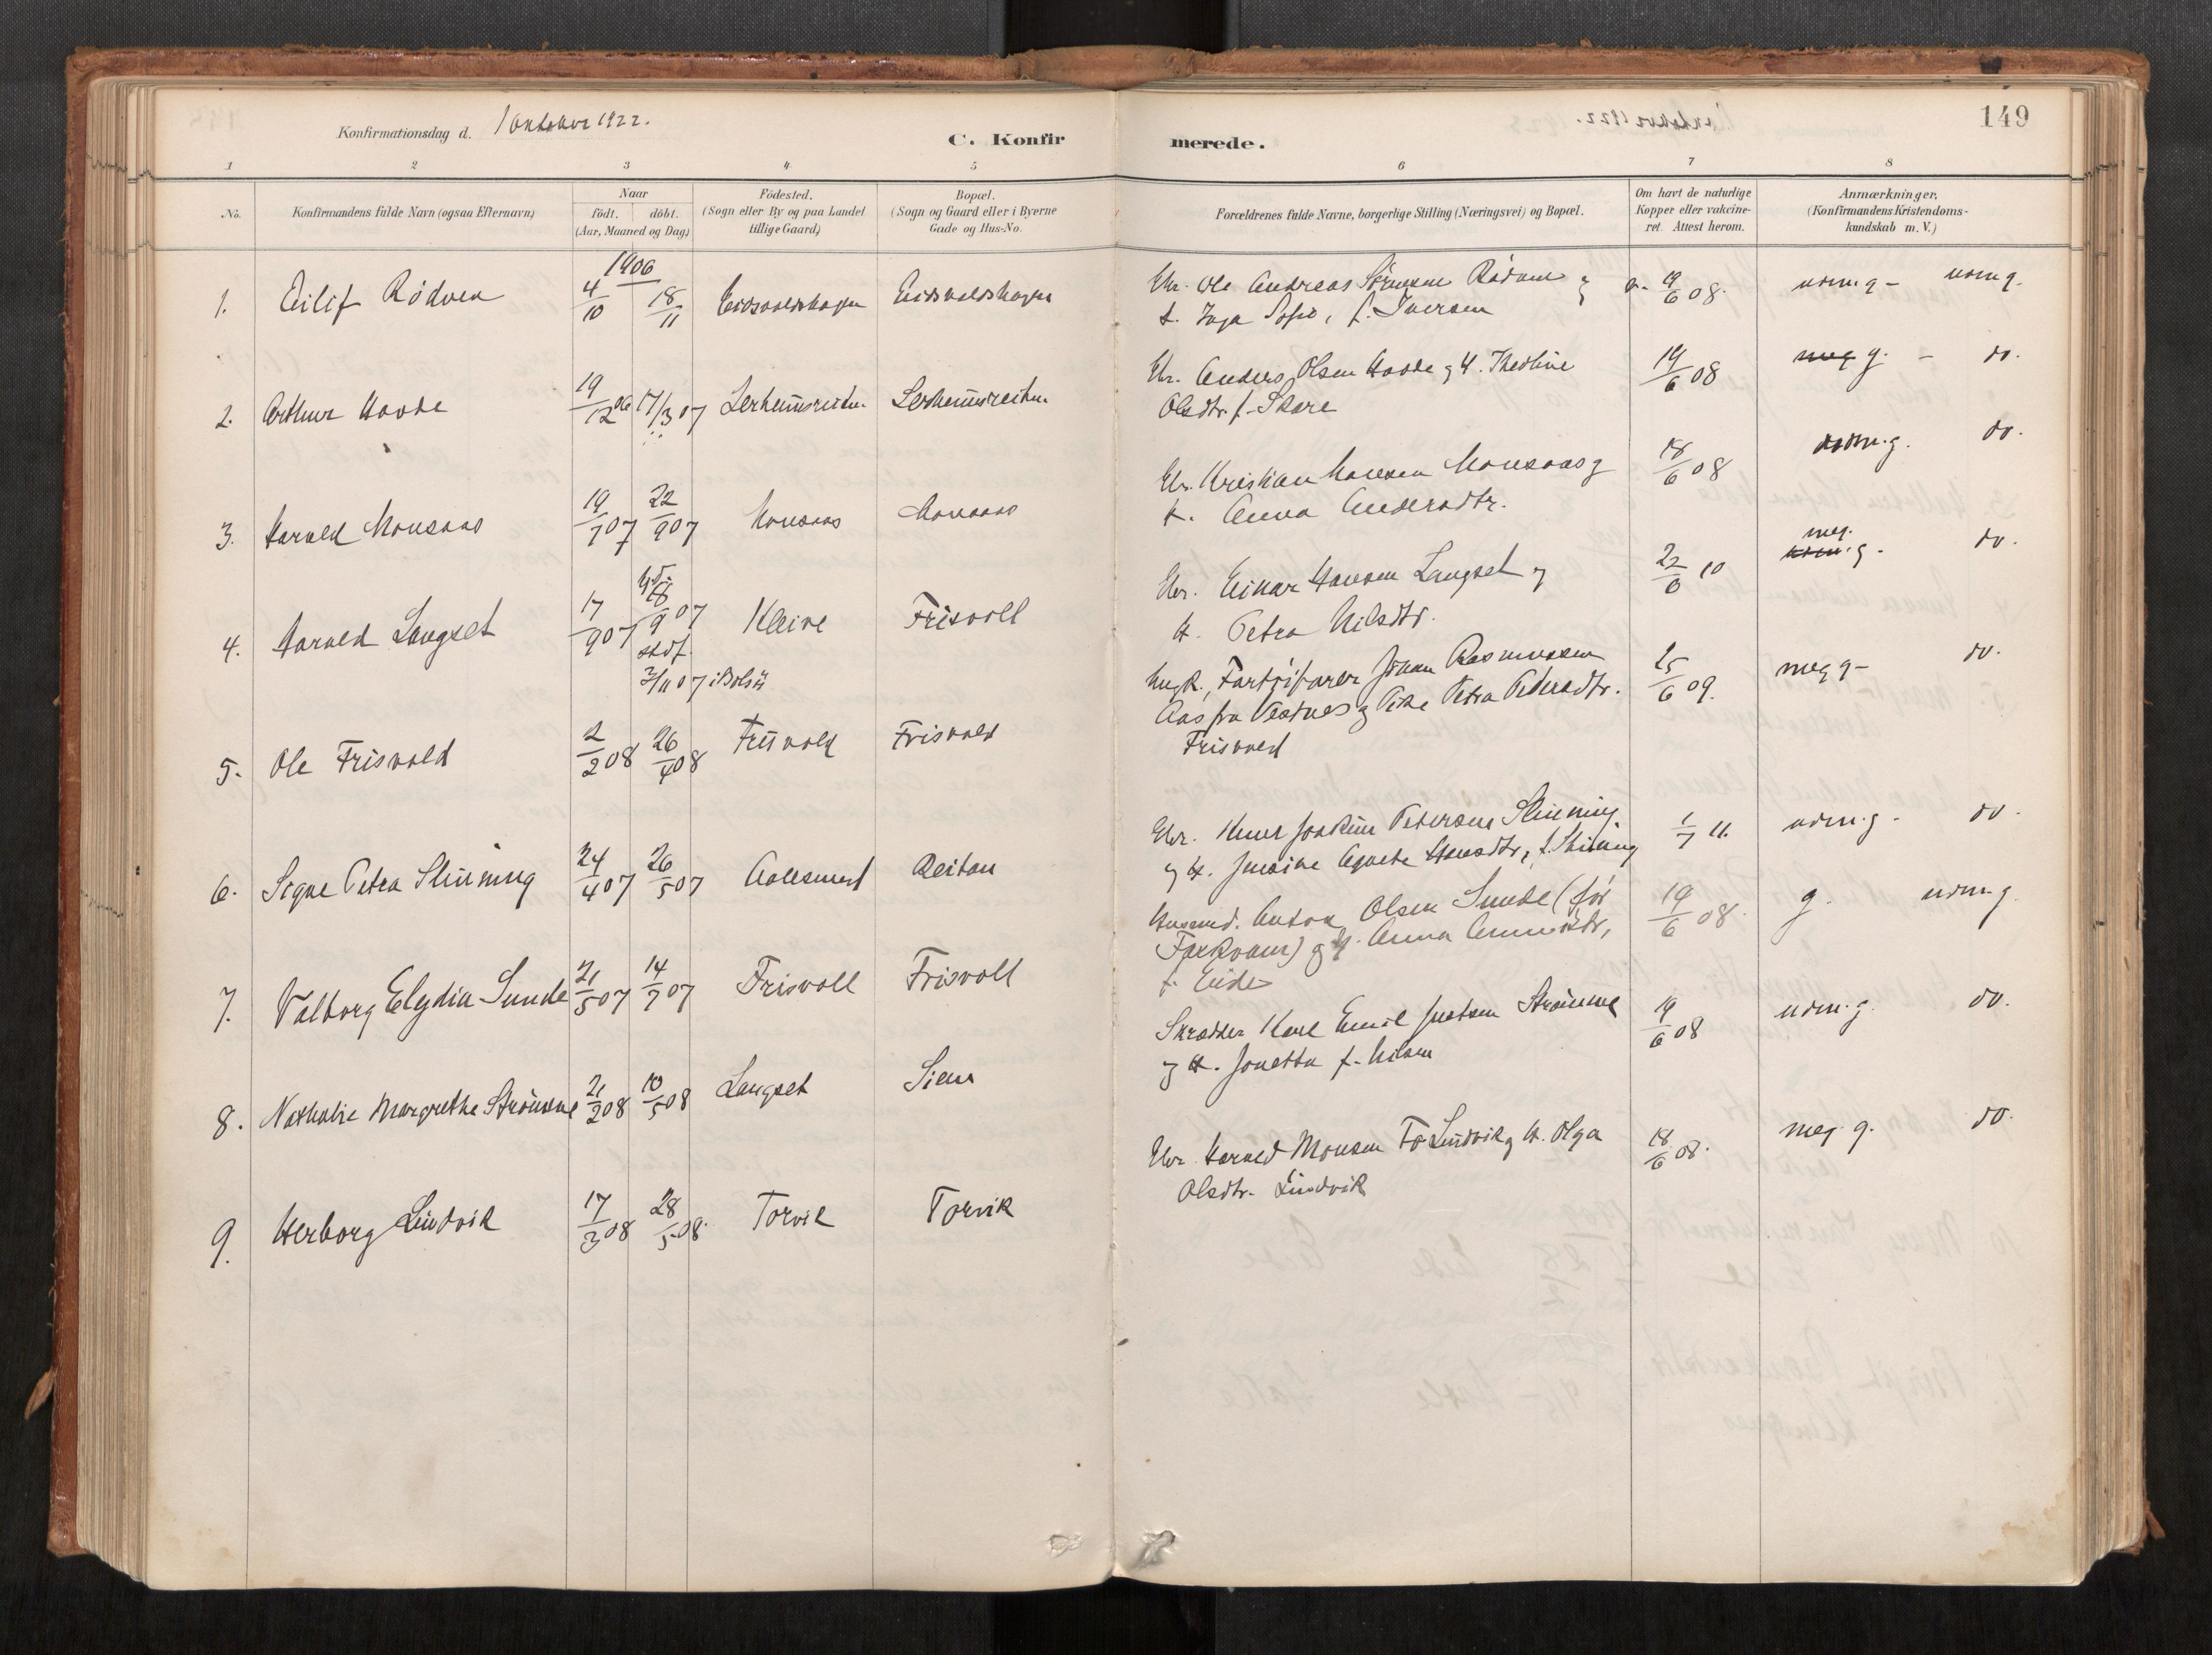 149
Konfirmationsdag d. 1 oktober 1922.
C. Konfirmerede.
1 2 3 4 5 6 7 8
No.
Konfirmandens fulde Navn (ogsaa Efternavn)
Naar
födt. döbt.
(Aar, Maaned og Dag)
Födested.
(Sogn eller By og paa Landet
tillige Gaard)
Bopæl.
(Sogn og Gaard eller i Byerne
Gade og Hus-No.
Forældrenes fulde Navne, borgerlige Stilling (Næringsvei) og Bopæl.
Om havt de naturlige
Kopper eller vakcine-
ret. Attest herom.
Anmærkninger,
(Konfirmandens Kristendoms-
kundskab m. V.)
1906
1. Eilif Rødven 4/10 18/11 Eidsvaldshagen Eidsvaldshagen
Gbr. Ole Andreas Rødven og 19/6 08. udm. g - udm g.
f. Iversen
2. Arthur Hovde 19/12 06 17/3 07 Lerheimsreiten Lerheimsreiten
Gbr. Anders Olsen Hovde og H. Thedline 19/6 08 meg g. - do.
Olsdtr. f. Skare
3. Harald Monsaas 19/7 07 22/9 07 Monsaas Monsaas
Gbr. Kristian Hansen Monsaas og 18/6 08 udm. g. do.
H. Anna Andersdtr.
4. Harald Langset 17/9 07 18/9 07 Kleive Frisvoll
stdf.
3/11 07 i Bolsø
Gbr. Einar Hansen Langset og 22/6 10 meg. g. do.
H. Petra Nilsdtr.
5. Ole Frisvold 2/2 08 26/4 08 Frisvold Frisvold
Ungk., Fartøifører Johan Rasmussen 25/6 09. meg g - do.
Aas fra Vestnes og Pike Petra Pedersdtr.
Frisvold
6. Signe Petra Slinning 24/4 07 26/5 07 Aalesund Reitan
Gbr. Knut Joakim Petersen Slinning 1/7 11. udm. g. do.
og H. Agnete Hansdtr, f. Slinning
7. Valborg Elydia Sunde 21/5 07 14/7 07 Frisvoll Frisvoll
Husmd. Anton Olsen Sunde (før 19/6 08. g. udm g.
og H. Anna
f. Eide
8. Nathalie Margrethe Strømme 21/2 08 10/5 08 Langset Siem
Skrædder Karl Emil Strømme 19/6 08 udm. g. do.
og H. Jonetta f. Nilsen
9. Herborg Lindvik 17/3 08 28/5 08. Torvik Torvik
Gbr. Harald Monsen Lindvik og H. Olga 18/6 08. meg g. do.
Olsdtr. Lindvik